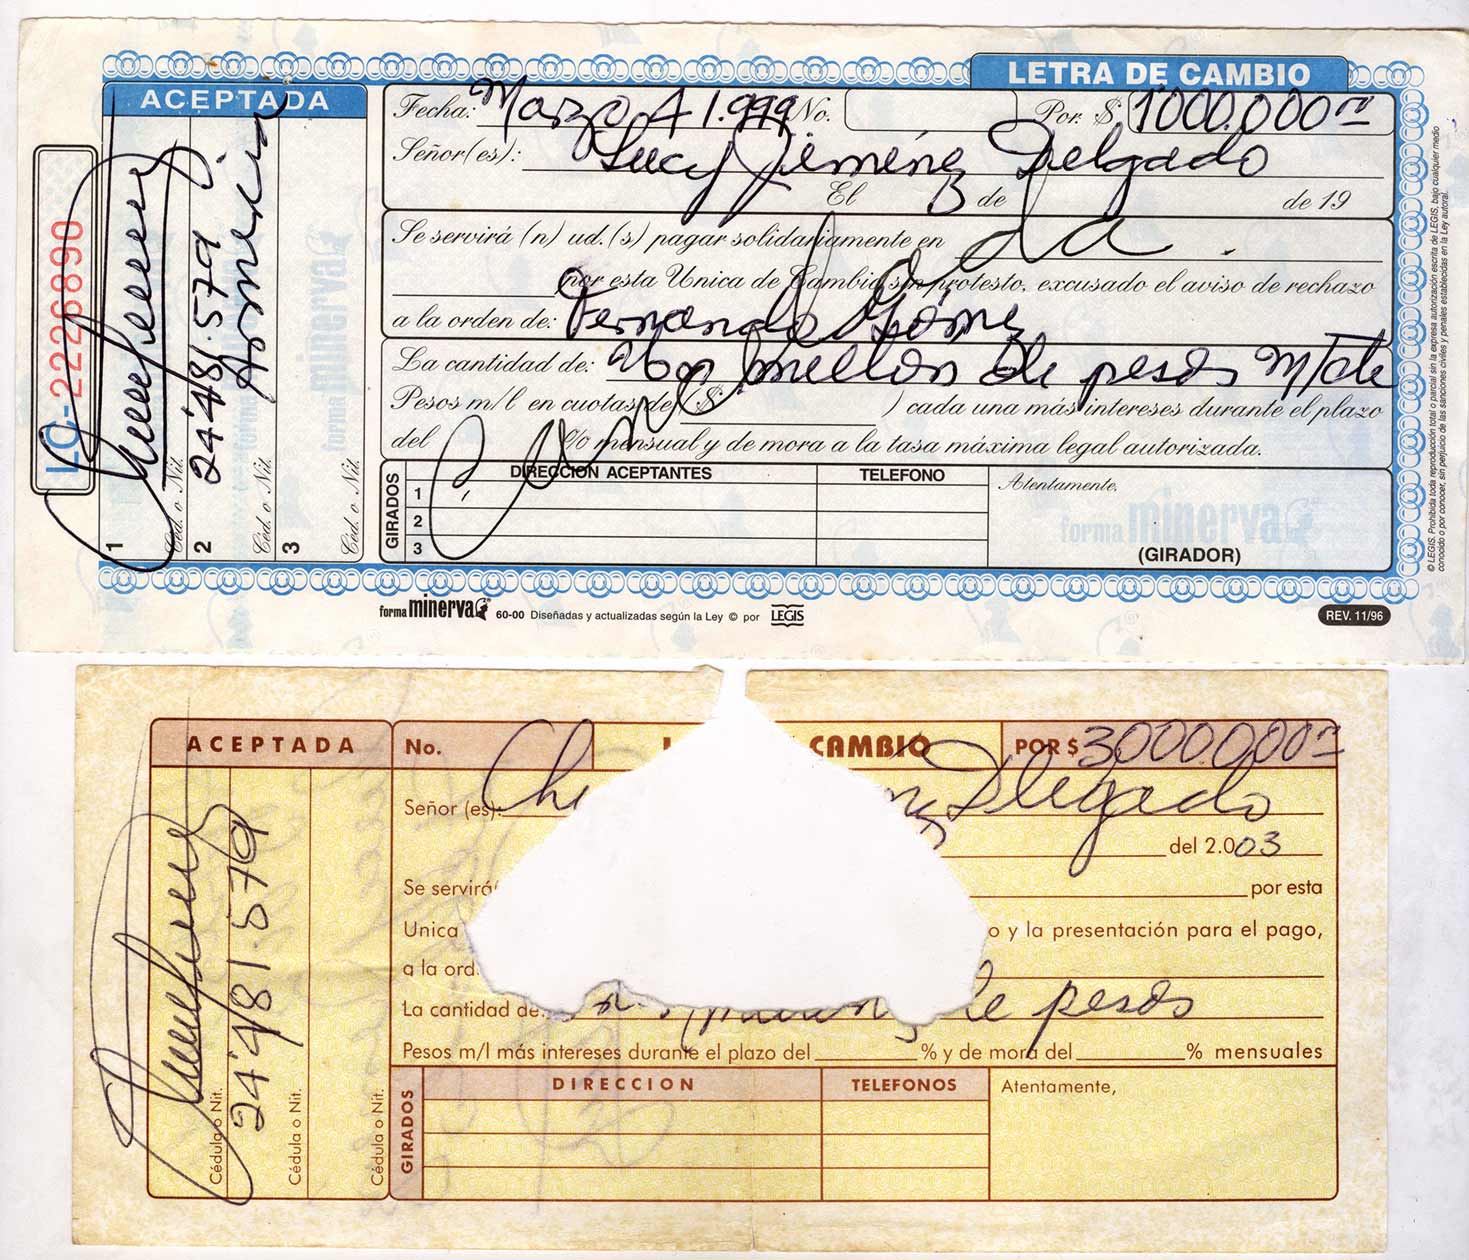 LETRA DE CAMBIO
ACEPTADA
Fecha: Marzo 4 1.999 No. Por $ 1000.000oo
Señor(es): Lucy Jiménez Delgado
El de de 19
Se servirá (n) ud.(s) pagar solidariamente en
por esta Unica de Cambio sin protesto, excusado el aviso de rechazo
a la orden de: Fernando Gómez
La cantidad de: Un millon de pesos M/cte
Pesos m/l en cuotas de ($ ) cada una más intereses durante el plazo
del % mensual y de mora a la tasa máxima legal autorizada.
GIRADOS
DIRECCION ACEPTANTES TELEFONO
Atentamente,
1
2
3
forma minerva
(GIRADOR)
LC-2226890
24'481.579
Armenia
1 Céd. o Nit.
2 Céd. o Nit.
3 Céd. o Nit.
forma minerva
forma minerva 60-00 Diseñadas y actualizadas según la Ley © por LEGIS
REV. 11/96
© LEGIS. Prohibida toda reproducción total o parcial sin la expresa autorización escrita de LEGIS, bajo cualquier medio
conocido o por conocer, sin perjuicio de las sanciones civiles y penales establecidas en la Ley autoral.
ACEPTADA
No. CAMBIO POR $ 3000.000oo
Señor (es): Delgado
del 2.003
Se servirá por esta
Unica o y la presentación para el pago,
a la ord
La cantidad de: de pesos
Pesos m/l más intereses durante el plazo del % y de mora del % mensuales
GIRADOS
DIRECCION TELEFONOS
Atentamente,
24'481.579
Cédula o Nit.
Cédula o Nit.
Cédula o Nit.